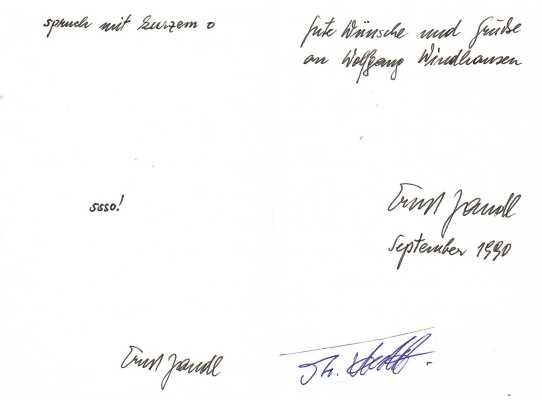 spruch mit kurzem o
ssso!
Ernst Jandl
gute Wünsche und Grüße
an Wolfgang Windhausen
Ernst Jandl
September 1990